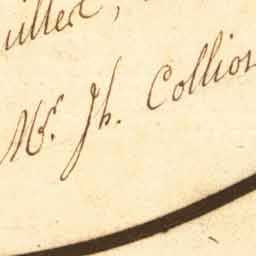 uillet,
Mr. Jh. Collion